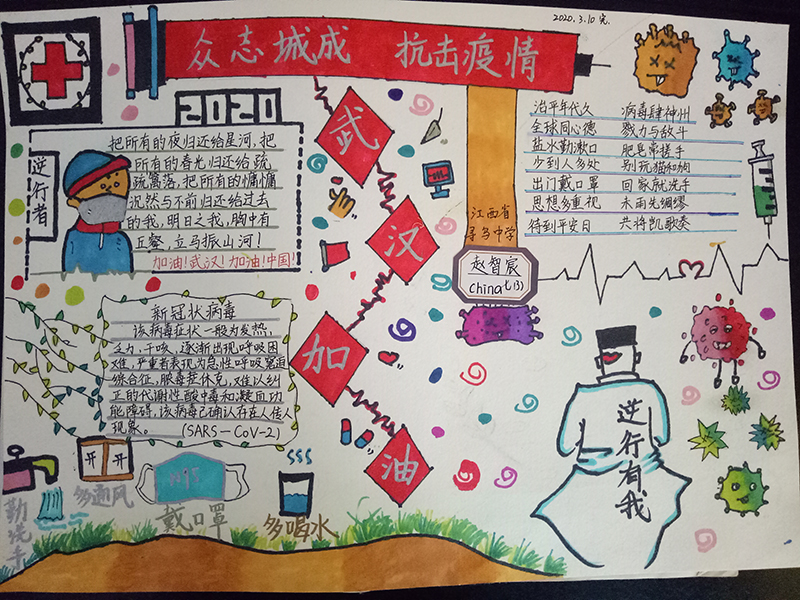 2020.3.10 完.
众志城成 抗击疫情
2020
逆行者
把所有的夜归还给星河,把
所有的春光归还给疏
疏篱落,把所有的慵慵
沉然与不前归还给过去
的我,明日之我,胸中有
丘壑,立马振山河!
加油!武汉!加油!中国!
武
汉
加
油
治平年代久 病毒肆神州
全球同心德 戮力与敌斗
盐水勤漱口 肥皂常搓手
少到人多处 别玩猫和狗
出门戴口罩 回家就洗手
思想多重视 未雨先绸缪
待到平安日 共将凯歌奏
江西省
寻乌中学
赵智宸
China 七(3)
新冠状病毒
该病毒症状一般为发热,
乏力,干咳,逐渐出现呼吸困
难,严重者表现为急性呼吸窘迫
综合征,脓毒症休克,难以纠
正的代谢性酸中毒和凝血功
能障碍.该病毒已确认存在人传人
现象。 (SARS-CoV-2)
逆行有我
开 开
多通风
勤洗手
戴口罩
多喝水